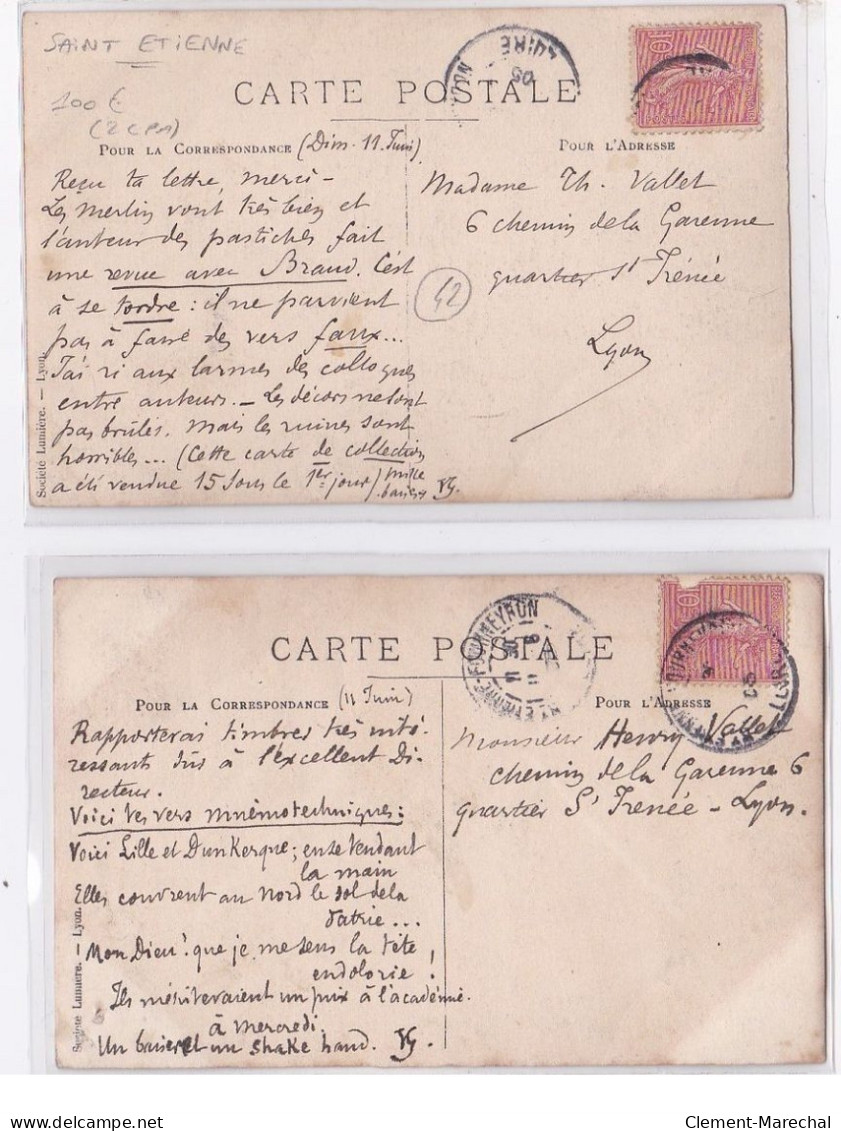 SAINT ETIENNE
100 €
(2 CPA)
LOIRE
05
CARTE POSTALE
POUR LA CORRESPONDANCE (Dim. 11 Juin)
POUR L'ADRESSE
Reçu ta lettre, merci -
Les Merlin vont très bien et
l'auteur des pastiches fait
une revue avec Braud. C'est
à se tordre : il ne parvient
pas à faire des vers faux...
J'ai ri aux larmes des colloques
entre auteurs. - Les décors ne sont
pas brûlés. Mais les ruines sont
horribles... (Cette carte de collection
a été vendue 15 sous le 1er jour) Mille
baisers
Madame Th. Vallet
6 chemin de la Garenne
quartier St Irénée
Lyon
42
Société Lumière. — Lyon.
CARTE POSTALE
ST ETIENNE-FOURNEYRON
POUR LA CORRESPONDANCE (11 Juin)
POUR L'ADRESSE
Rapporterai timbres très inté-
ressants dûs à l'excellent Di-
recteur.
Voici tes vers mnémotechniques :
Voici Lille et Dunkerque ; en se tendant
la main
Elles couvrent au Nord le sol de la
Patrie...
! Mon Dieu ! que je me sens la tête
endolorie !
Ils mériteraient un prix à l'académie.
à mercredi.
Un baiser et un shake hand.
Monsieur Henry Vallet
chemin de la Garenne 6
quartier St Irénée - Lyon.
Société Lumière. — Lyon.
Clement-Marechal